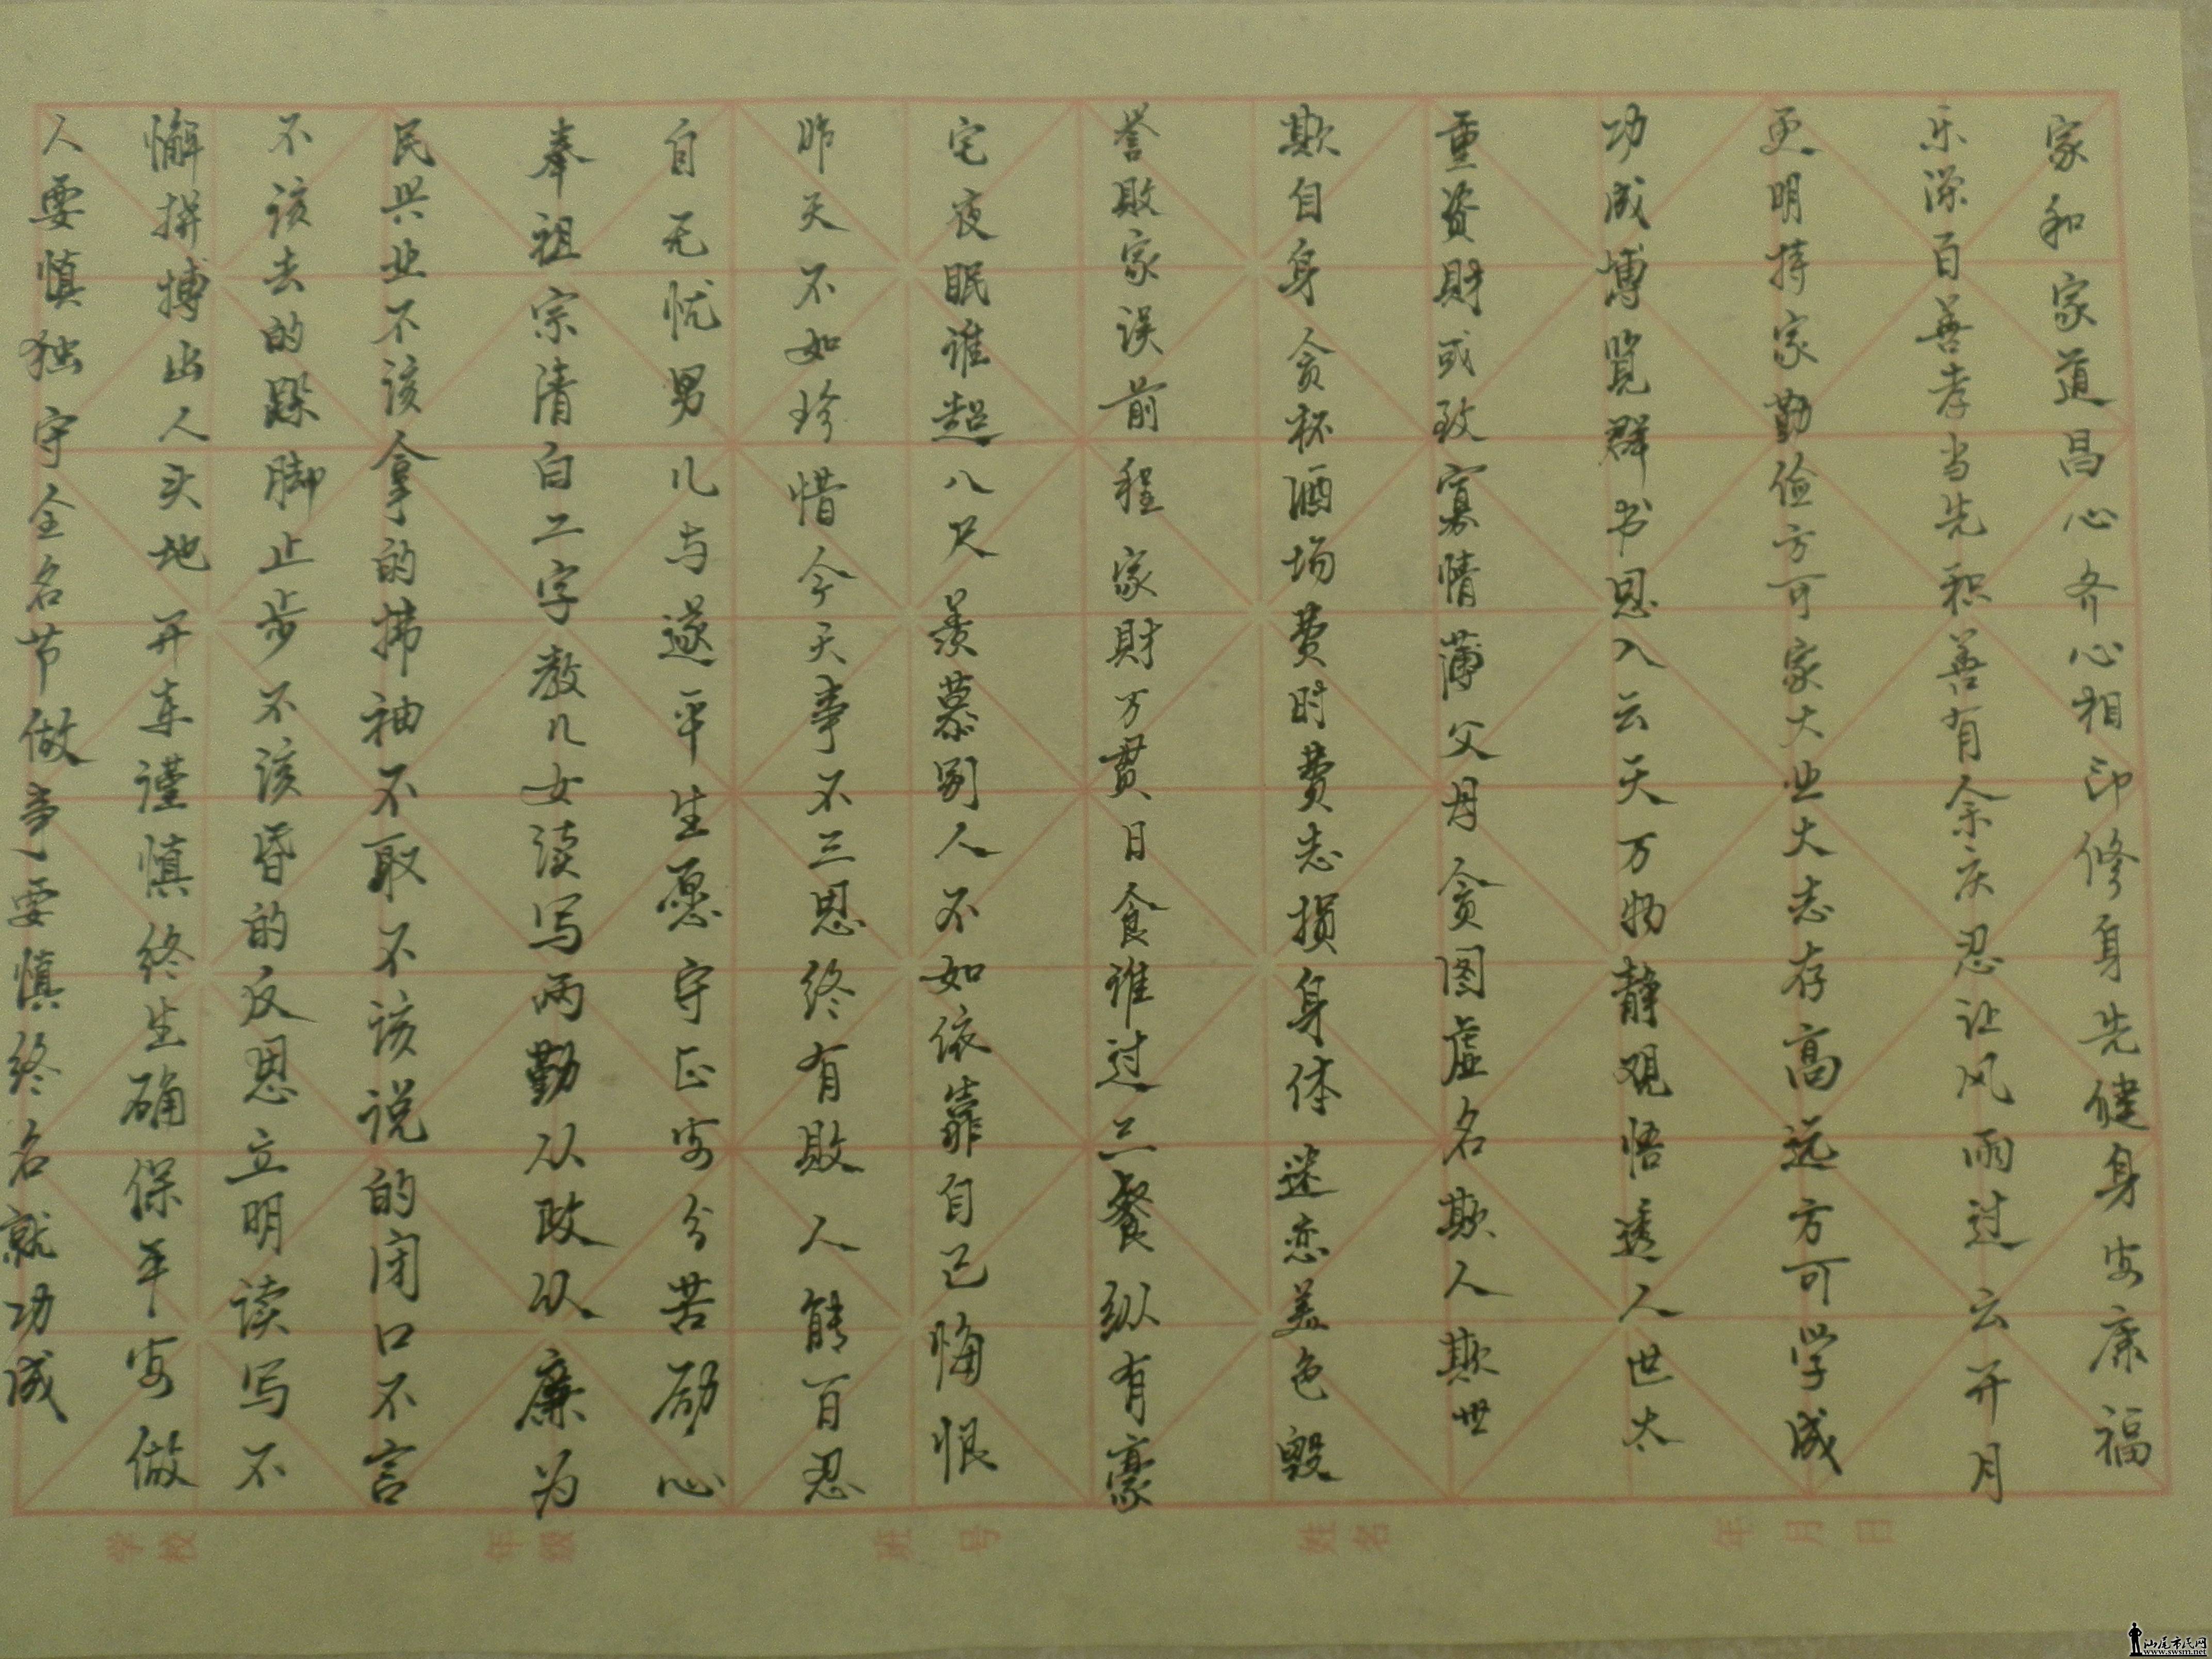 家和家道昌心齐心相印修身先健身安康福
乐深百善孝当先积善有余庆忍让风雨过云开月
更明持家勤俭方可家大业大志存高远方可学成
功成博览群书思入云天万物静观悟透人世太
重资财或致寡情薄父母贪图虚名欺人欺世
欺自身贪杯酒场费时费志损身体迷恋美色毁
誉败家误前程家财万贯日食谁过三餐纵有豪
宅夜眠谁超八尺羡慕别人不如依靠自己悔恨
昨天不如珍惜今天事不三思终有败人能百忍
自无忧男儿与遂平生愿守正安分苦励心
奉祖宗清白二字教儿女读写两勤从政以廉为
民兴业不该拿的拂袖不取不该说的闭口不言
不该去的跺脚止步不该昏的反思立明读写不
懈拼搏出人头地开车谨慎终生确保平安做
人要慎独守全名节做事要慎终名就功成
学校 年级 班号 姓名 年月日
汕尾市民网
www.swsm.net